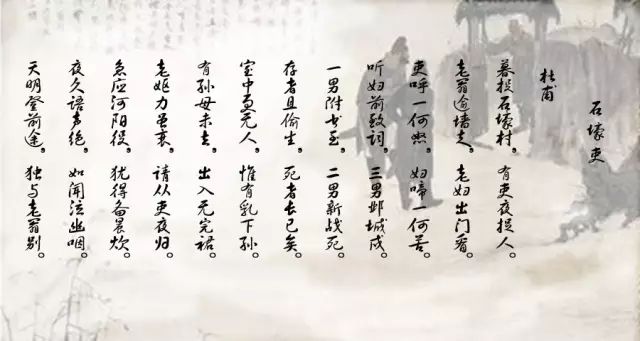 石壕吏
杜甫
暮投石壕村，有吏夜捉人。
老翁逾墙走，老妇出门看。
吏呼一何怒，妇啼一何苦。
听妇前致词，三男邺城戍。
一男附书至，二男新战死。
存者且偷生，死者长已矣。
室中更无人，惟有乳下孙。
有孙母未去，出入无完裙。
老妪力虽衰，请从吏夜归。
急应河阳役，犹得备晨炊。
夜久语声绝，如闻泣幽咽。
天明登前途，独与老翁别。